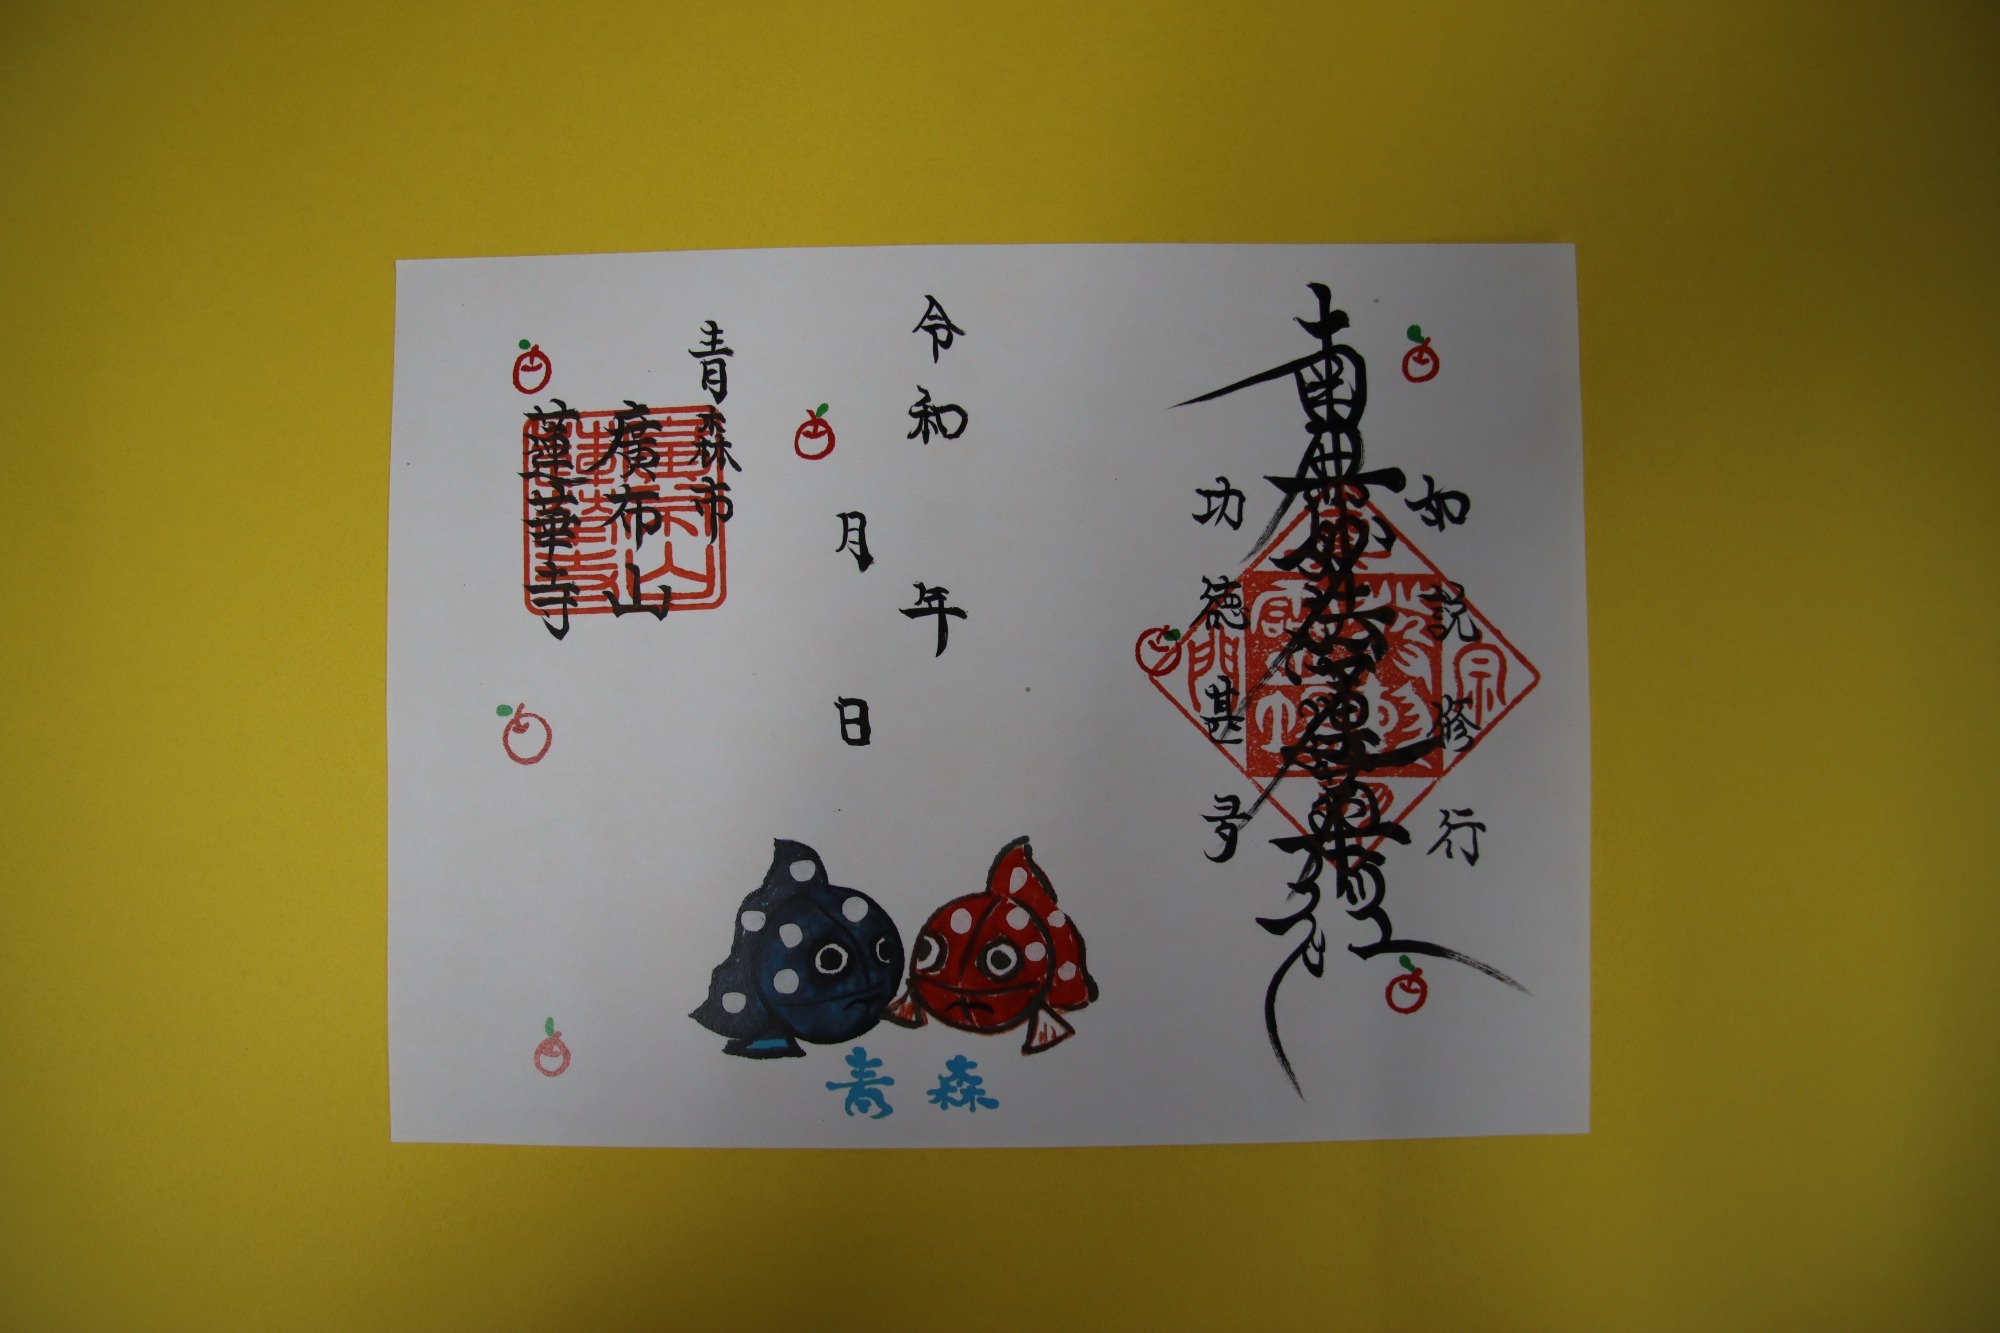 如説修行
南無妙法蓮華経
功徳甚多
令和　年
月　日
青森市
廣布山
蓮華寺
青森